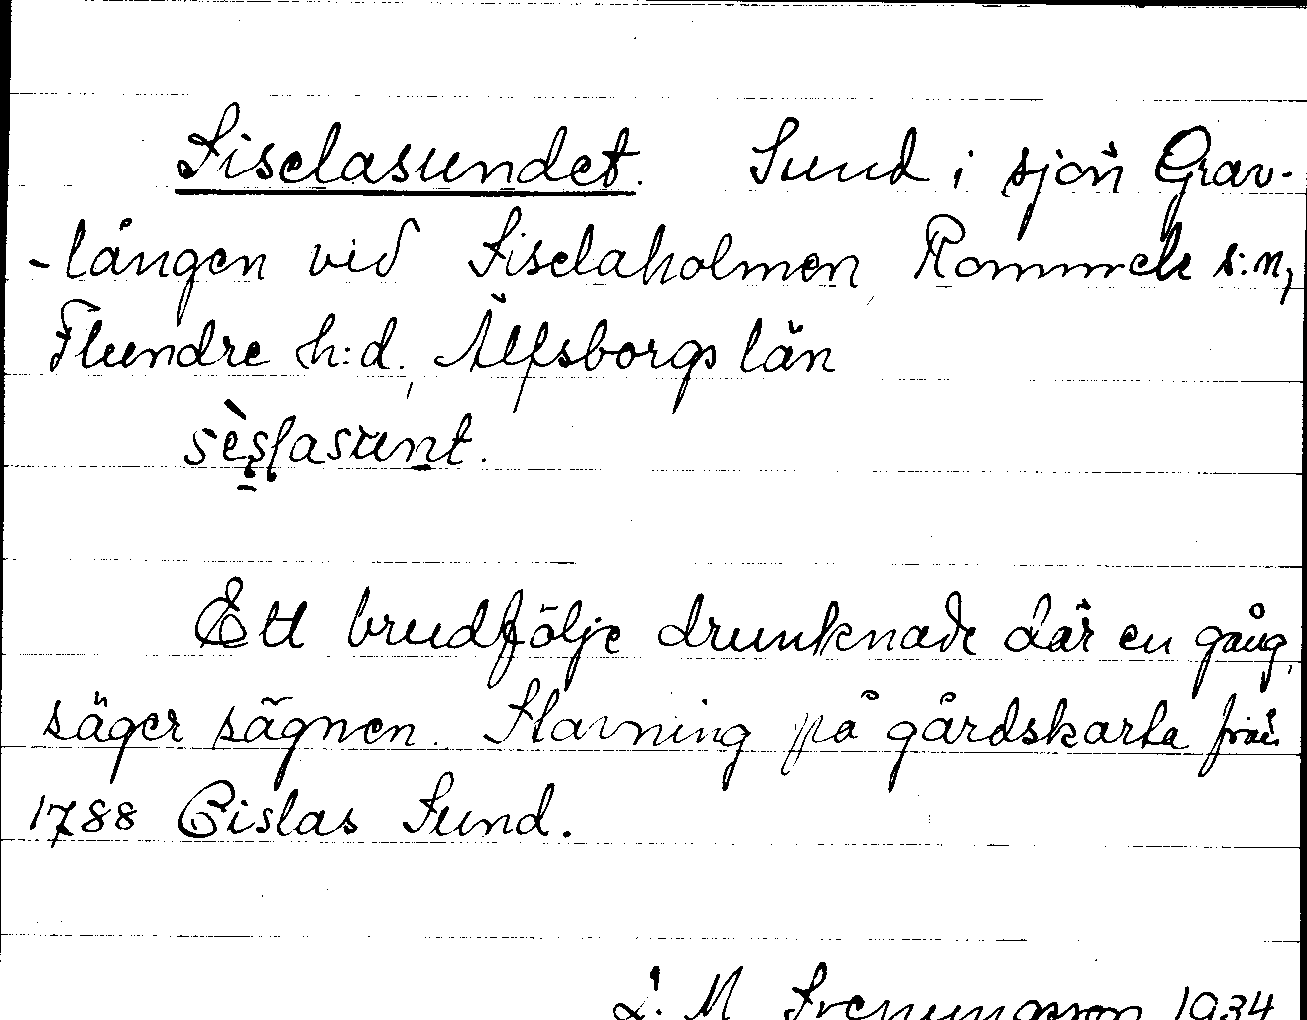 Siselasundet. Sund i sjön Grav-
-lången vid Siselaholmen, Rommele s:n,
Flundre h:d., Älfsborgs län
sèslasunt.
Ett brudfölje drunknade där en gång,
säger sägnen. Stavning på gårdskarta från
1788 Cislas Sund.
D. M Svenungsson 1934